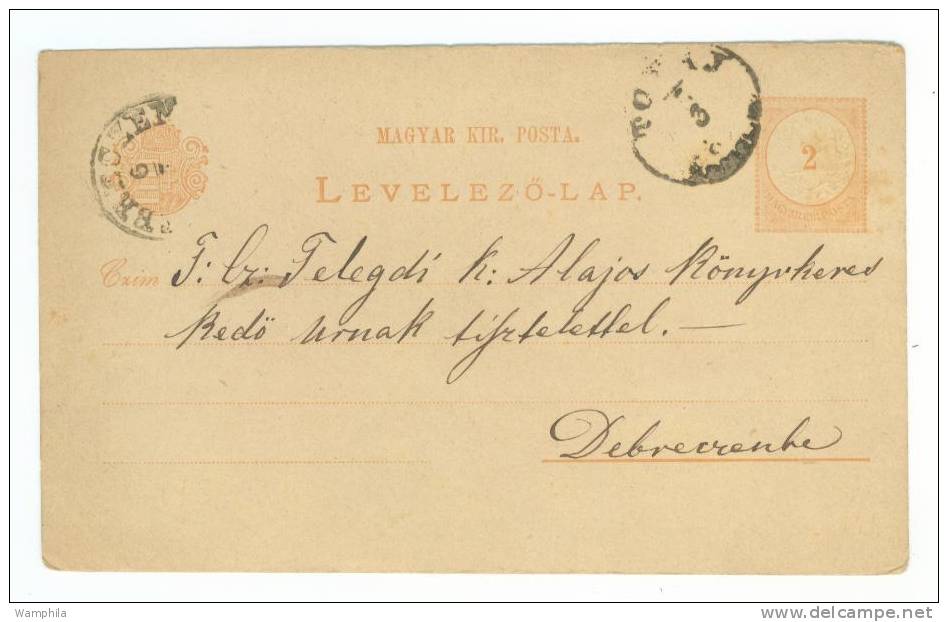 MAGYAR KIR. POSTA.
LEVELEZŐ-LAP.
TOKAJ
8
2
DEBRECZEN
9
Czim T: Cz: Telegdi K: Alajos Könyvkeres
kedö urnak tisztelettel. —
Debreczenbe
Wamphila
delcampe.net